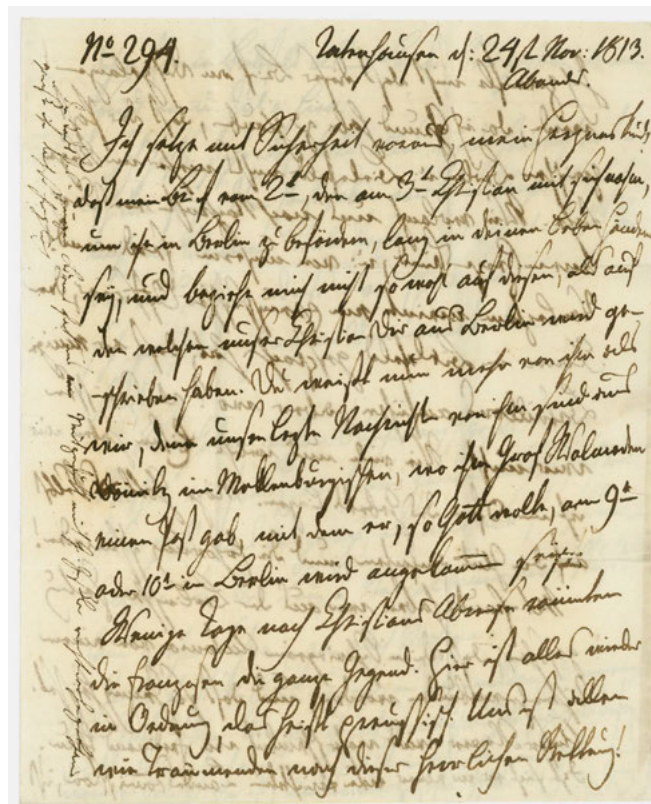 No 294. Tatenhausen d: 24st Nov: 1813.
Abends.
Ich setze mit Sicherheit voraus, mein Herzenskind,
daß mein Brief vom 2t, den am 3t Christian mit sich nahm,
um ihn in Berlin zu befördern, lang in deinen lieben Händen
sey, und beziehe mich nicht sowohl auf diesen, als auf
den welchen unser Christian Dir aus Berlin wird ge-
schrieben haben. Du weißt nun mehr von ihm als
wir, denn unsere lezte Nachrichten von ihm sind aus
Dömitz im Meklenburgischen, wo ihm Graf Walmoden
einen Paß gab, mit dem er, so Gott wolle, am 9t
oder 10t in Berlin wird angekommen seyn.
Wenige Tage nach Christians Abreise räumten
die Franzosen die ganze Gegend. Hier ist alles wieder
in Ordnung, das heißt preussisch. Uns ist allen
wie Träumenden nach dieser herrlichen Rettung!